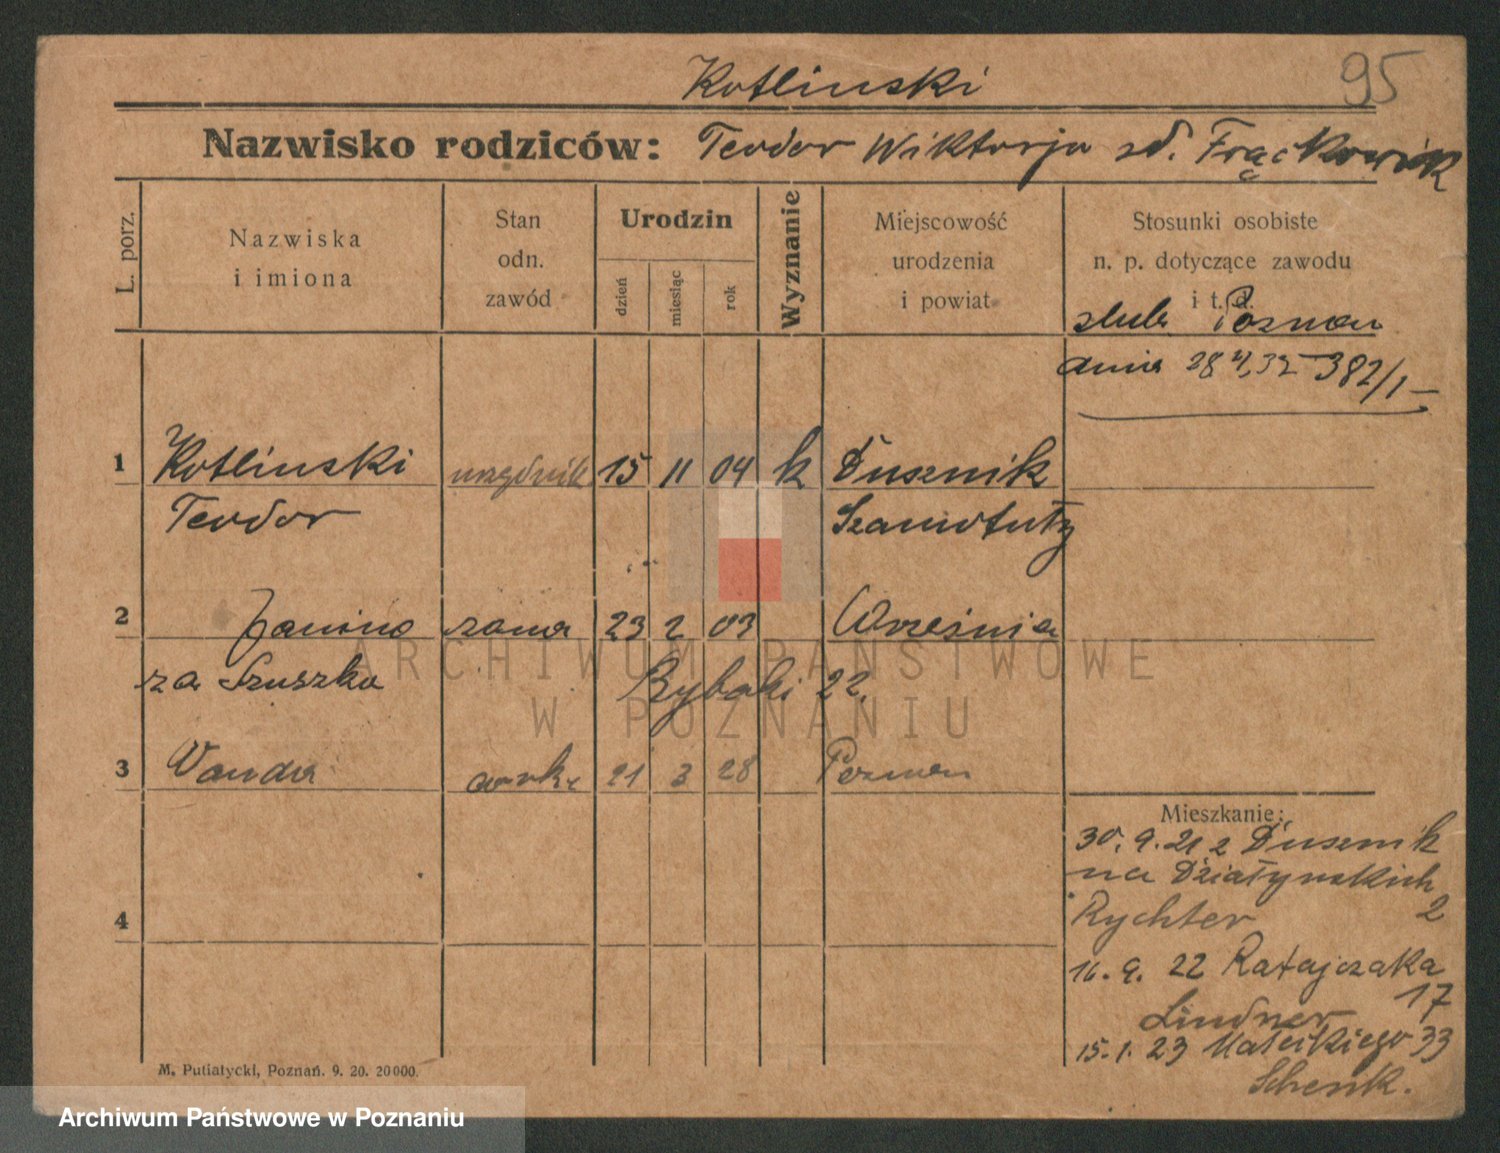 95
Kotlinski
Nazwisko rodziców: Teodor Wiktorja zd. Frąckowiak
L. porz.
Nazwiska
i imiona
Stan
odn.
zawód
Urodzin
dzień
miesiąc
rok
Wyznanie
Miejscowość
urodzenia
i powiat
Stosunki osobiste
n. p. dotyczące zawodu
i t. d.
ślub Poznan
dnia 28 4, 32 382/1-
1 Kotlinski urzędnik 15 11 04 k Dusznik
Teodor Szamotuły
2 Janina żona 23 2 03 Września
za Szuszka Rybaki 22.
3 Wanda corka 21 3 28 Poznan
Mieszkanie:
30. 9. 21 z Dusznik
na Działynskich
Rychter 2
4
16. 9. 22 Ratajczaka
17
Lindner
15. 1. 23 Matejkiego 33
Schenk.
M. Putiatycki, Poznań. 9. 20. 20000.
ARCHIWUM PAŃSTWOWE
W POZNANIU
Archiwum Państwowe w Poznaniu